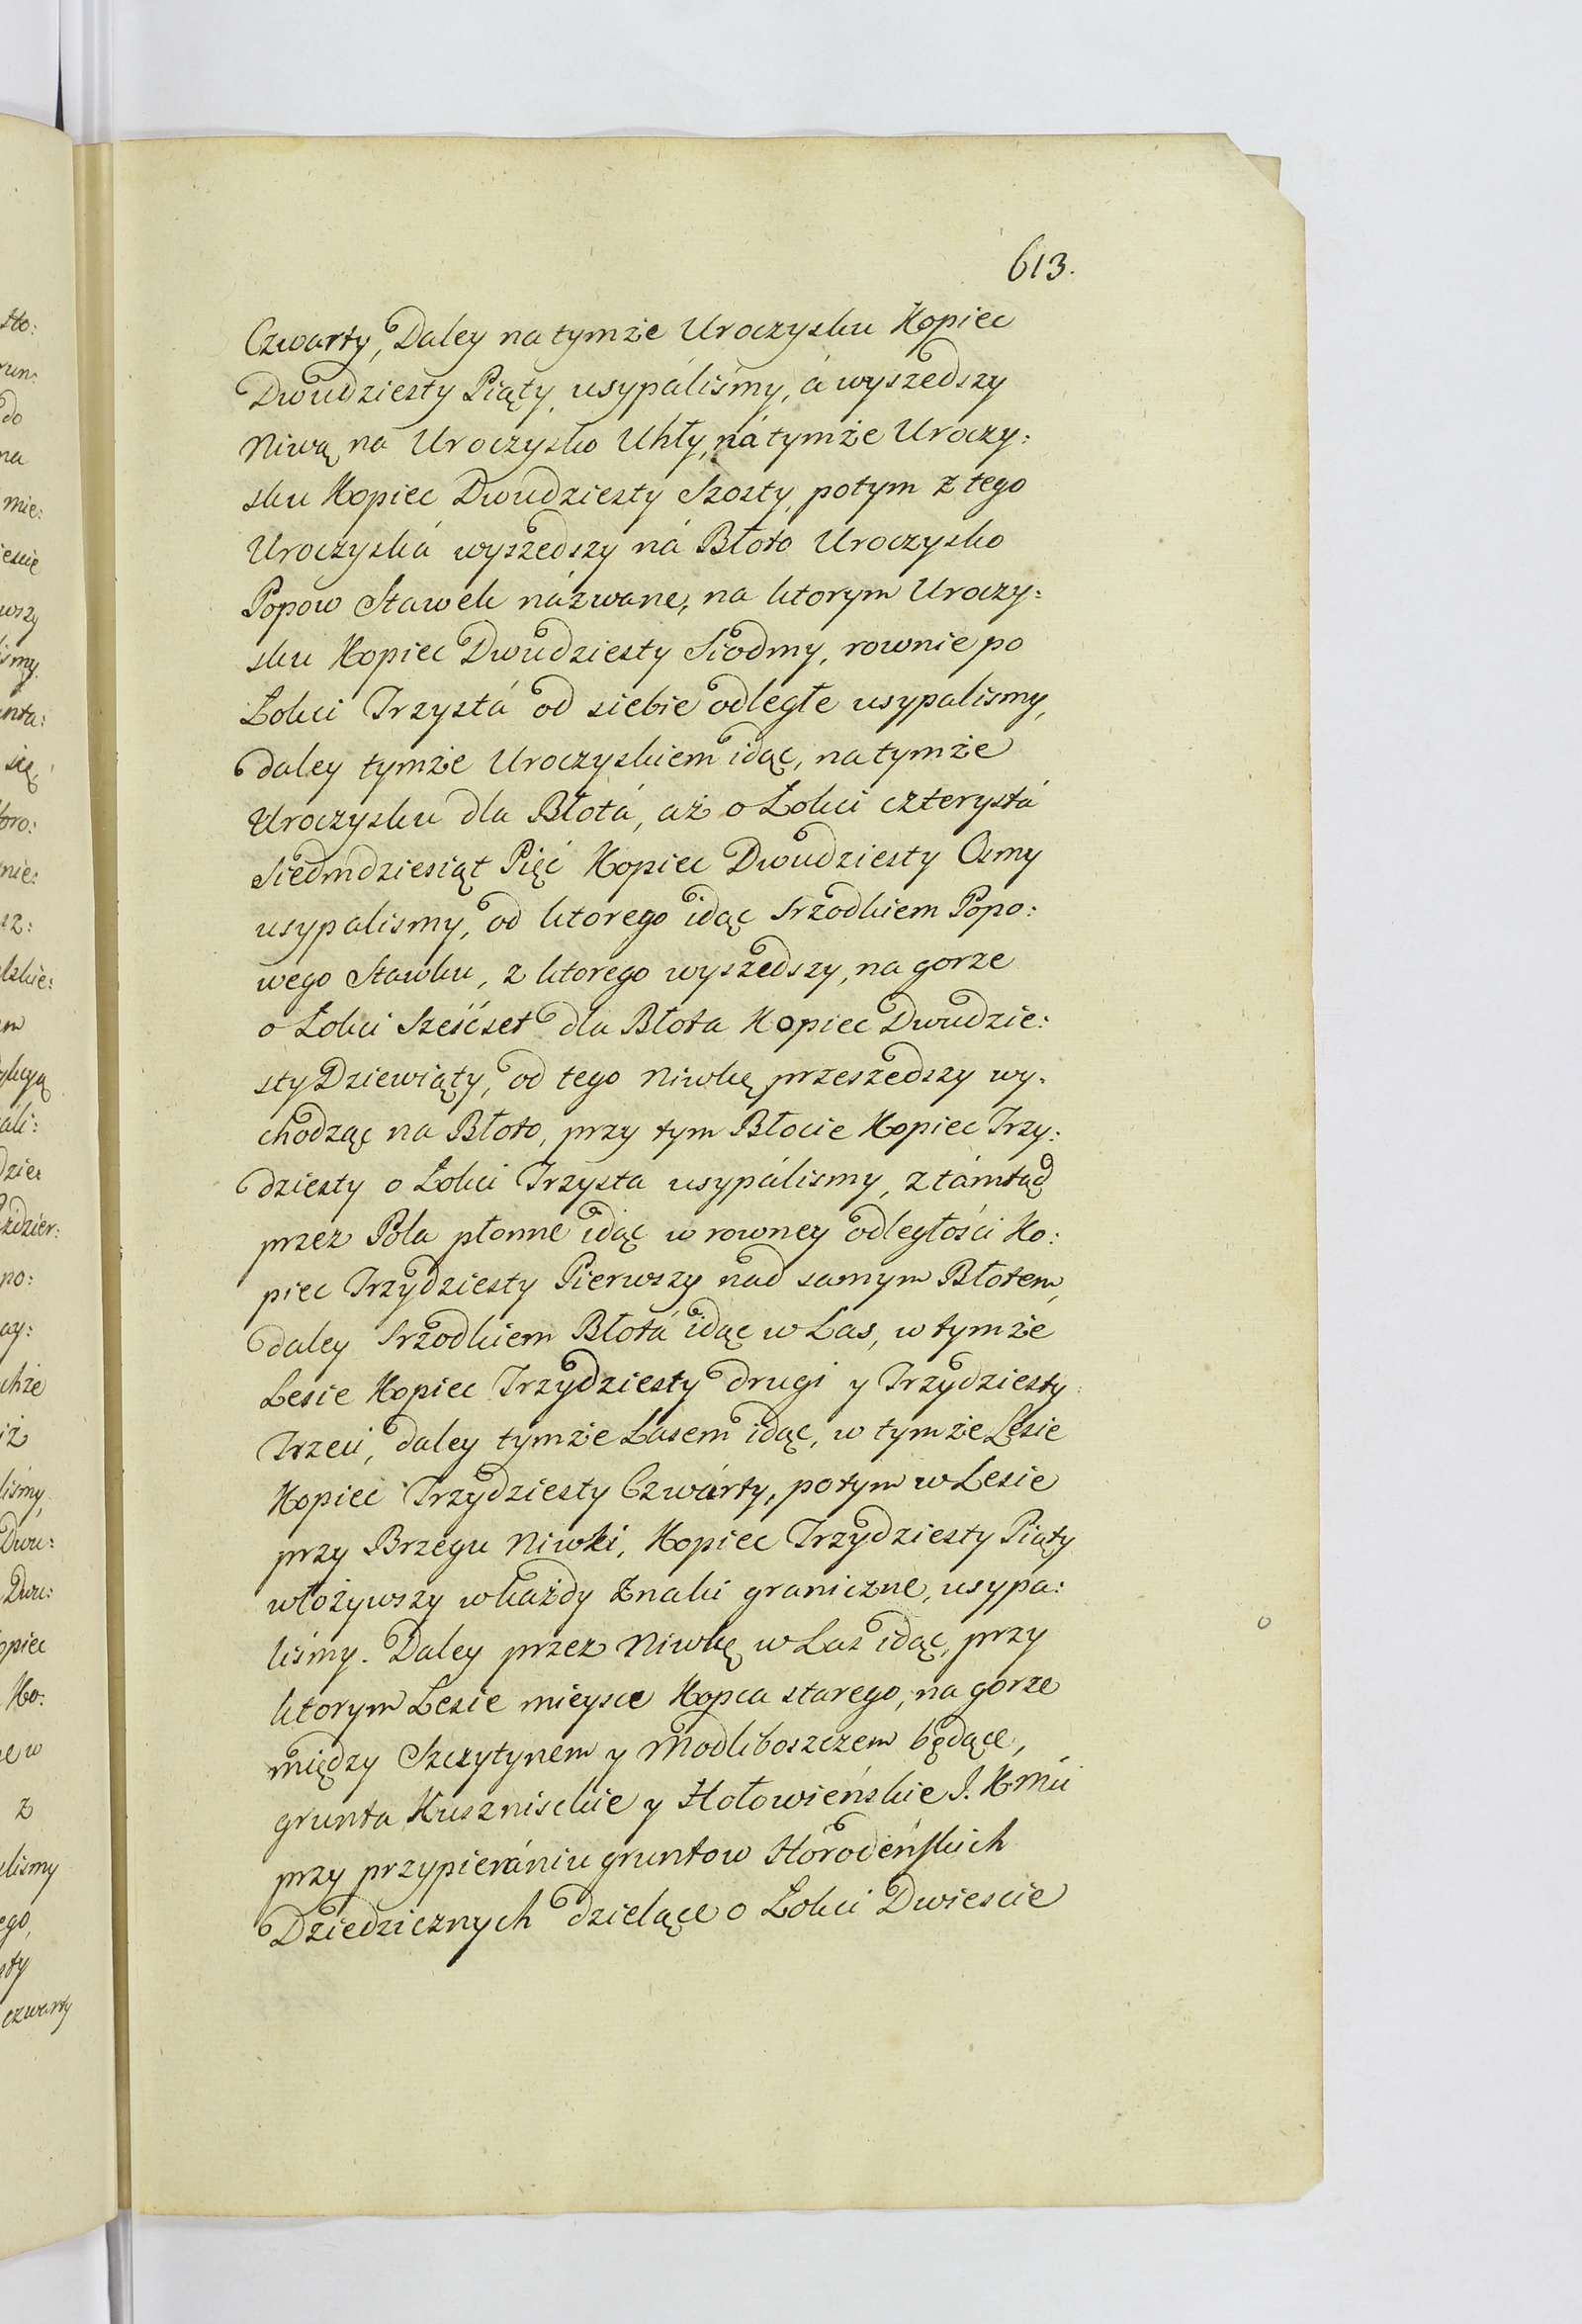 613.
Czwarty, Daley na tymże Uroczysku Kopiec
Dwudziesty Piąty, usypáliśmy, á wyszedszy
Niwą na Uroczysko Uhły, ná tymże Uroczy:
sku Kopiec Dwudziesty Szosty, potym z tego
Uroczyská wyszedszy ná Błoto Uroczysko
Popow Stawek názwane, na ktorym Uroczy:
sku Kopiec Dwudziesty Siodmy, rownie po
Łokci Trzystá od siebie odległe usypalismy,
daley tymże Uroczyskiem idąc, na tymże
Uroczysku dla Błotá, aż o Łokci czterystá
Siedmdziesiąt Pięć Kopiec Dwudziesty Osmy
usypalismy, od ktorego idąc Srzodkiem Popo:
wego Stawku, z ktorego wyszedszy, na gorze
o Łokci Sześćset dla Błota Kopiec Dwudzie:
sty Dziewiąty, od tego Niwkę przeszedszy wy:
chodząc na Błoto, przy tym Błocie Kopiec Trzy:
dziesty o Łokci Trzysta usypálismy, z támtąd
przez Pola płonne idąc w rowney odległości Ko:
piec Trzydziesty Pierwszy nad samym Błotem,
daley Srzodkiem Błotá idąc w Las, w tymże
Lesie Kopiec Trzydziesty drugi y Trzydziesty
Trzeci, daley tymże Lasem idąc, w tymże Lesie
Kopiec Trzydziesty Czwárty, potym w Lesie
przy Brzegu Niwki, Kopiec Trzydziesty Piąty
włożywszy w każdy Znaki graniczne, usypa:
liśmy. Daley przez Niwkę w Las idąc, przy
ktorym Lesie mieysce Kopca starego, na gorze
między Szczytynem y Modliboszczem będące,
grunta Kusznisckie y Hołowieńskie J. K Mći
przy przypierániu gruntow Horodeńskich
Dziedzicznych dzielące o Łokci Dwiescie